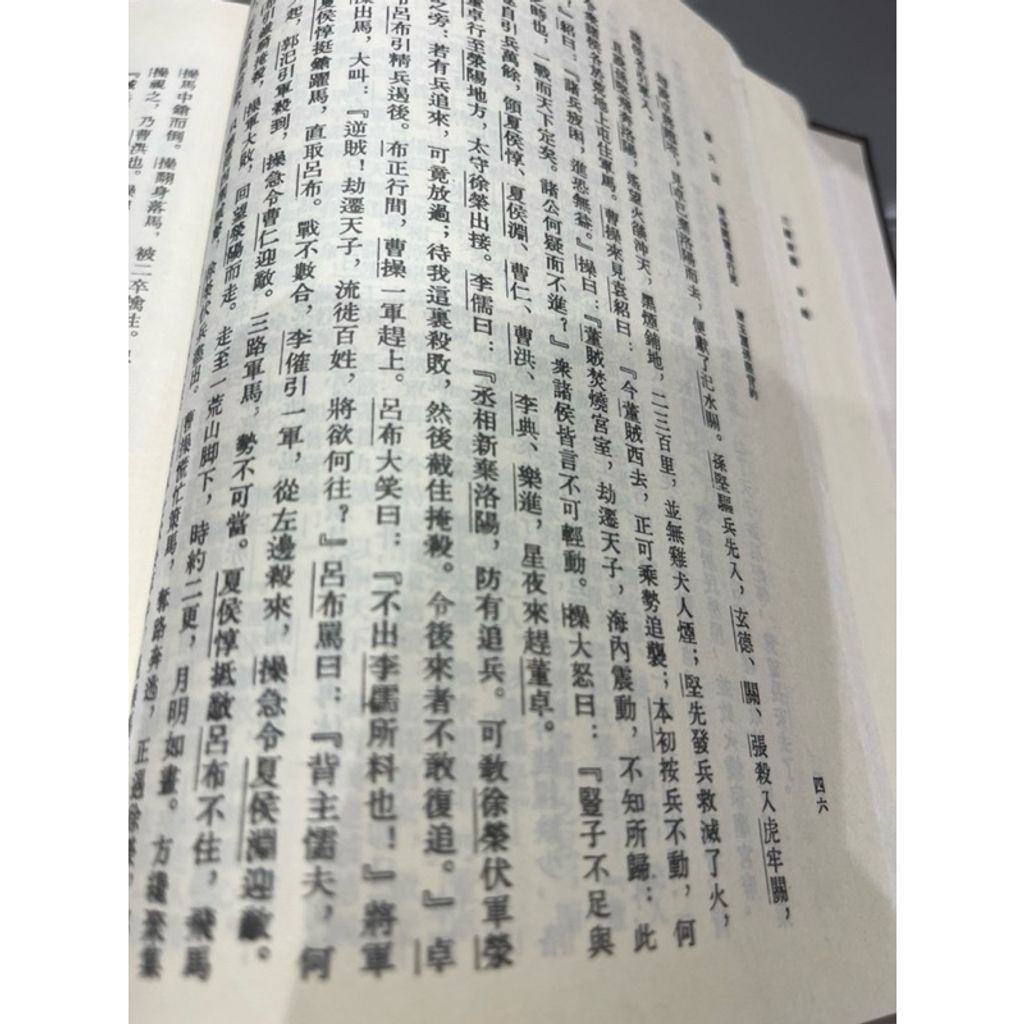 四六
汜水關。孫堅驅兵先入，玄德、關、張殺入虎牢關，
諸侯各引軍入。
且說孫堅飛奔洛陽，遙望火燄沖天，黑煙鋪地，二三百里，並無雞犬人煙；堅先發兵救滅了火，
令眾諸侯各於荒地上屯住軍馬。曹操來見袁紹曰：『今董賊西去，正可乘勢追襲；本初按兵不動，何
也？』紹曰：『諸兵疲困，進恐無益。』操曰：『董賊焚燒宮室，劫遷天子，海內震動，不知所歸：此
之時也，一戰而天下定矣。諸公何疑而不進？』衆諸侯皆言不可輕動。操大怒曰：『豎子不足與
自引兵萬餘，領夏侯惇、夏侯淵、曹仁、曹洪、李典、樂進，星夜來趕董卓。
董卓行至滎陽地方，太守徐榮出接。李儒曰：『丞相新棄洛陽，防有追兵。可敎徐榮伏軍滎
之旁；若有兵追來，可竟放過；待我這裏殺敗，然後截住掩殺。令後來者不敢復追。』卓
呂布引精兵遏後。布正行間，曹操一軍趕上。呂布大笑曰：『不出李儒所料也！』將軍
操出馬，大叫：『逆賊！劫遷天子，流徙百姓，將欲何往？』呂布罵曰：『背主懦夫，何
夏侯惇挺鎗躍馬，直取呂布。戰不數合，李傕引一軍，從左邊殺來，操急令夏侯淵迎敵。
起，郭汜引軍殺到，操急令曹仁迎敵。三路軍馬，勢不可當。夏侯惇抵敵呂布不住，飛馬
布引鐵騎掩殺，操軍大敗，回望滎陽而走。走至一荒山脚下，時約二更，月明如晝。方纔聚集
徐榮伏兵盡出。曹操慌忙策馬，奪路奔逃，正遇徐榮，
操馬中鎗而倒。操翻身落馬，被二卒擒住。
操視之，乃曹洪也。操曰